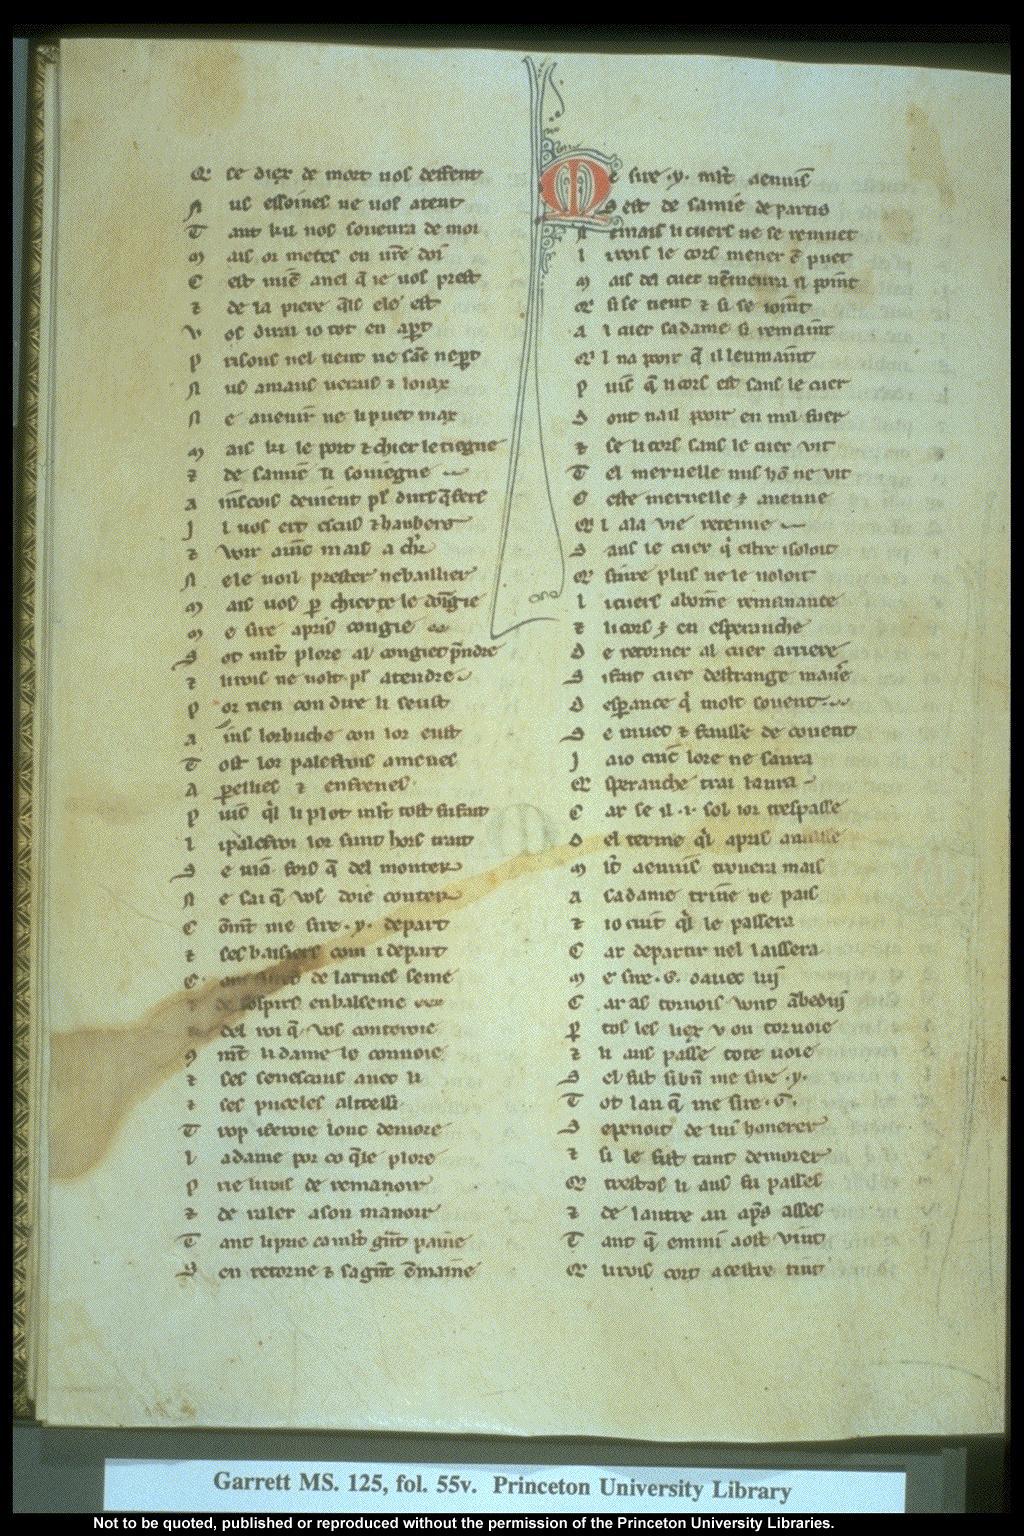 Et se diex de mort uos deffent
Nus essoines ne uos atent
Tant ku uos souenra de moi
Mais or metes en ur̄e doi
Cest mīe anel q̄ ie uos prest
⁊ de la piere q̄is ele est
Vos dirai io tot en ap̱t
Prisons nel tient ne sāc ne p̱t
Nus amans uerais ⁊ loiax
Ne auenir ne li puet max
Mais ki le port ⁊ chier le tiegne
⁊ de samīe li souiegne
A īscois deuient pl̄ durs q̄ fers
Il uos ert escus ⁊ haubers
⁊ voir ainc mais a ch̄r
Nele uoil prester ne baillier
Mais uos p̱ chierte le doīgie
Me sire apris congie
Sot ml̄t plore al congiet p̄ndre
⁊ li rois ne uolt pl̄ atendre
Por rien con dire li seust
Ains lor buche con lor eust
Tost lor palefrois amenes
Apellies ⁊ enfrenes
Puis q̄l li plot ml̄t tost fu fait
li palefroi lor sunt hors trait
Se nia fors q̄ del monter
Ne sai q̄ vos doie conter
Cōmt̄ me sire .y. depart
⁊ ses baisiers con i depart
de larmes seme
⁊ de sospirs enbalseme
del roi q̄ vos conteroie
Cmt̄ li dame le conuoie
⁊ ses seneschaus auec li
⁊ ses puceles altressi
Trop i feroie longe demore
la dame por co q̄le plore
Prie li rois de remanoir
⁊ de raler a son manoir
Tant li prie ca ml̄t grt̄ paine
Sen retorne ⁊ sa gnt̄ ēmaine
Me sire .y. ml̄t aenuis
Sest de samie departis
Remais li cuers ne se remuet
li rois le cors mener ē puet
Mais del cuer nēmenra il poīnt
Car si se tient ⁊ si se ioint
A l cuer sa dame ki remaīnt
Q'l na pooir q̄ il leumaīnt
Puis q̄ li cors est sans le cuer
Dont na il pooir en nul fuer
⁊ se li cors sans le cuer vit
Tel meruelle nus hō ne vit
Ceste meruelle ē auenue
Q'l a la vie retenue
Sans le cuer q̄ estre i soloit
Q' suire plus ne le uoloit
li cuers a boīne remanance
⁊ li cors ē en esperanche
De retorner al cuer arriere
Sifait cuer destrange maniē
Desp̱ance q̄ molt souent
Se muet ⁊ fausse de couent
Ia io cuic̄ lore ne saura
Q'speranche trai laura
Car se il .i. sol ior trespasse
Del terme q̄l apris a masse
Ml̄t a enuis trouuera mais
A sa dame triue ne pais
⁊ io cuit q̄l le passera
Car departir nel laissera
Me sire .G. dauec lui
Car as tornois vont ābedui
P̱ tos les liex v on tornoie
⁊ li ans passe tote uoie
Sel fist si biē me sire .y.
Tot lan q̄ me sire .G.
Se penoit de lui honerer
⁊ si le fist tant demorer
Q' trestos li ans fu passes
⁊ de lautre an ap̄s asses
Tant q̄ emmi aost vint
Q' li rois cort a cestre tint
Garrett MS. 125, fol. 55v. Princeton University Library
Not to be quoted, published or reproduced without the permission of the Princeton University Libraries.